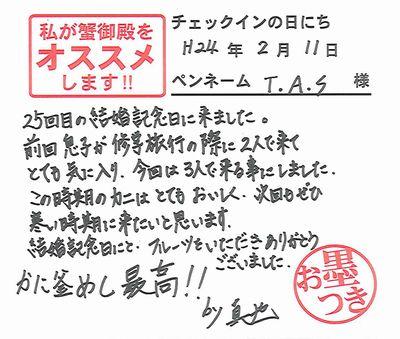 私が蟹御殿を
オススメ
します!!
チェックインの日にち
H24年2月11日
ペンネーム T.A.S 様
25回目の結婚記念日に来ました。
前回息子が修学旅行の際に2人で来て
とても気に入り、今回は3人で来る事にしました。
この時期のカニはとてもおいしく、次回もぜひ
寒い時期に来たいと思います。
結婚記念日にと、フルーツをいただきありがとう
ございました。
かに釜めし最高!!
by 真也
お墨つき